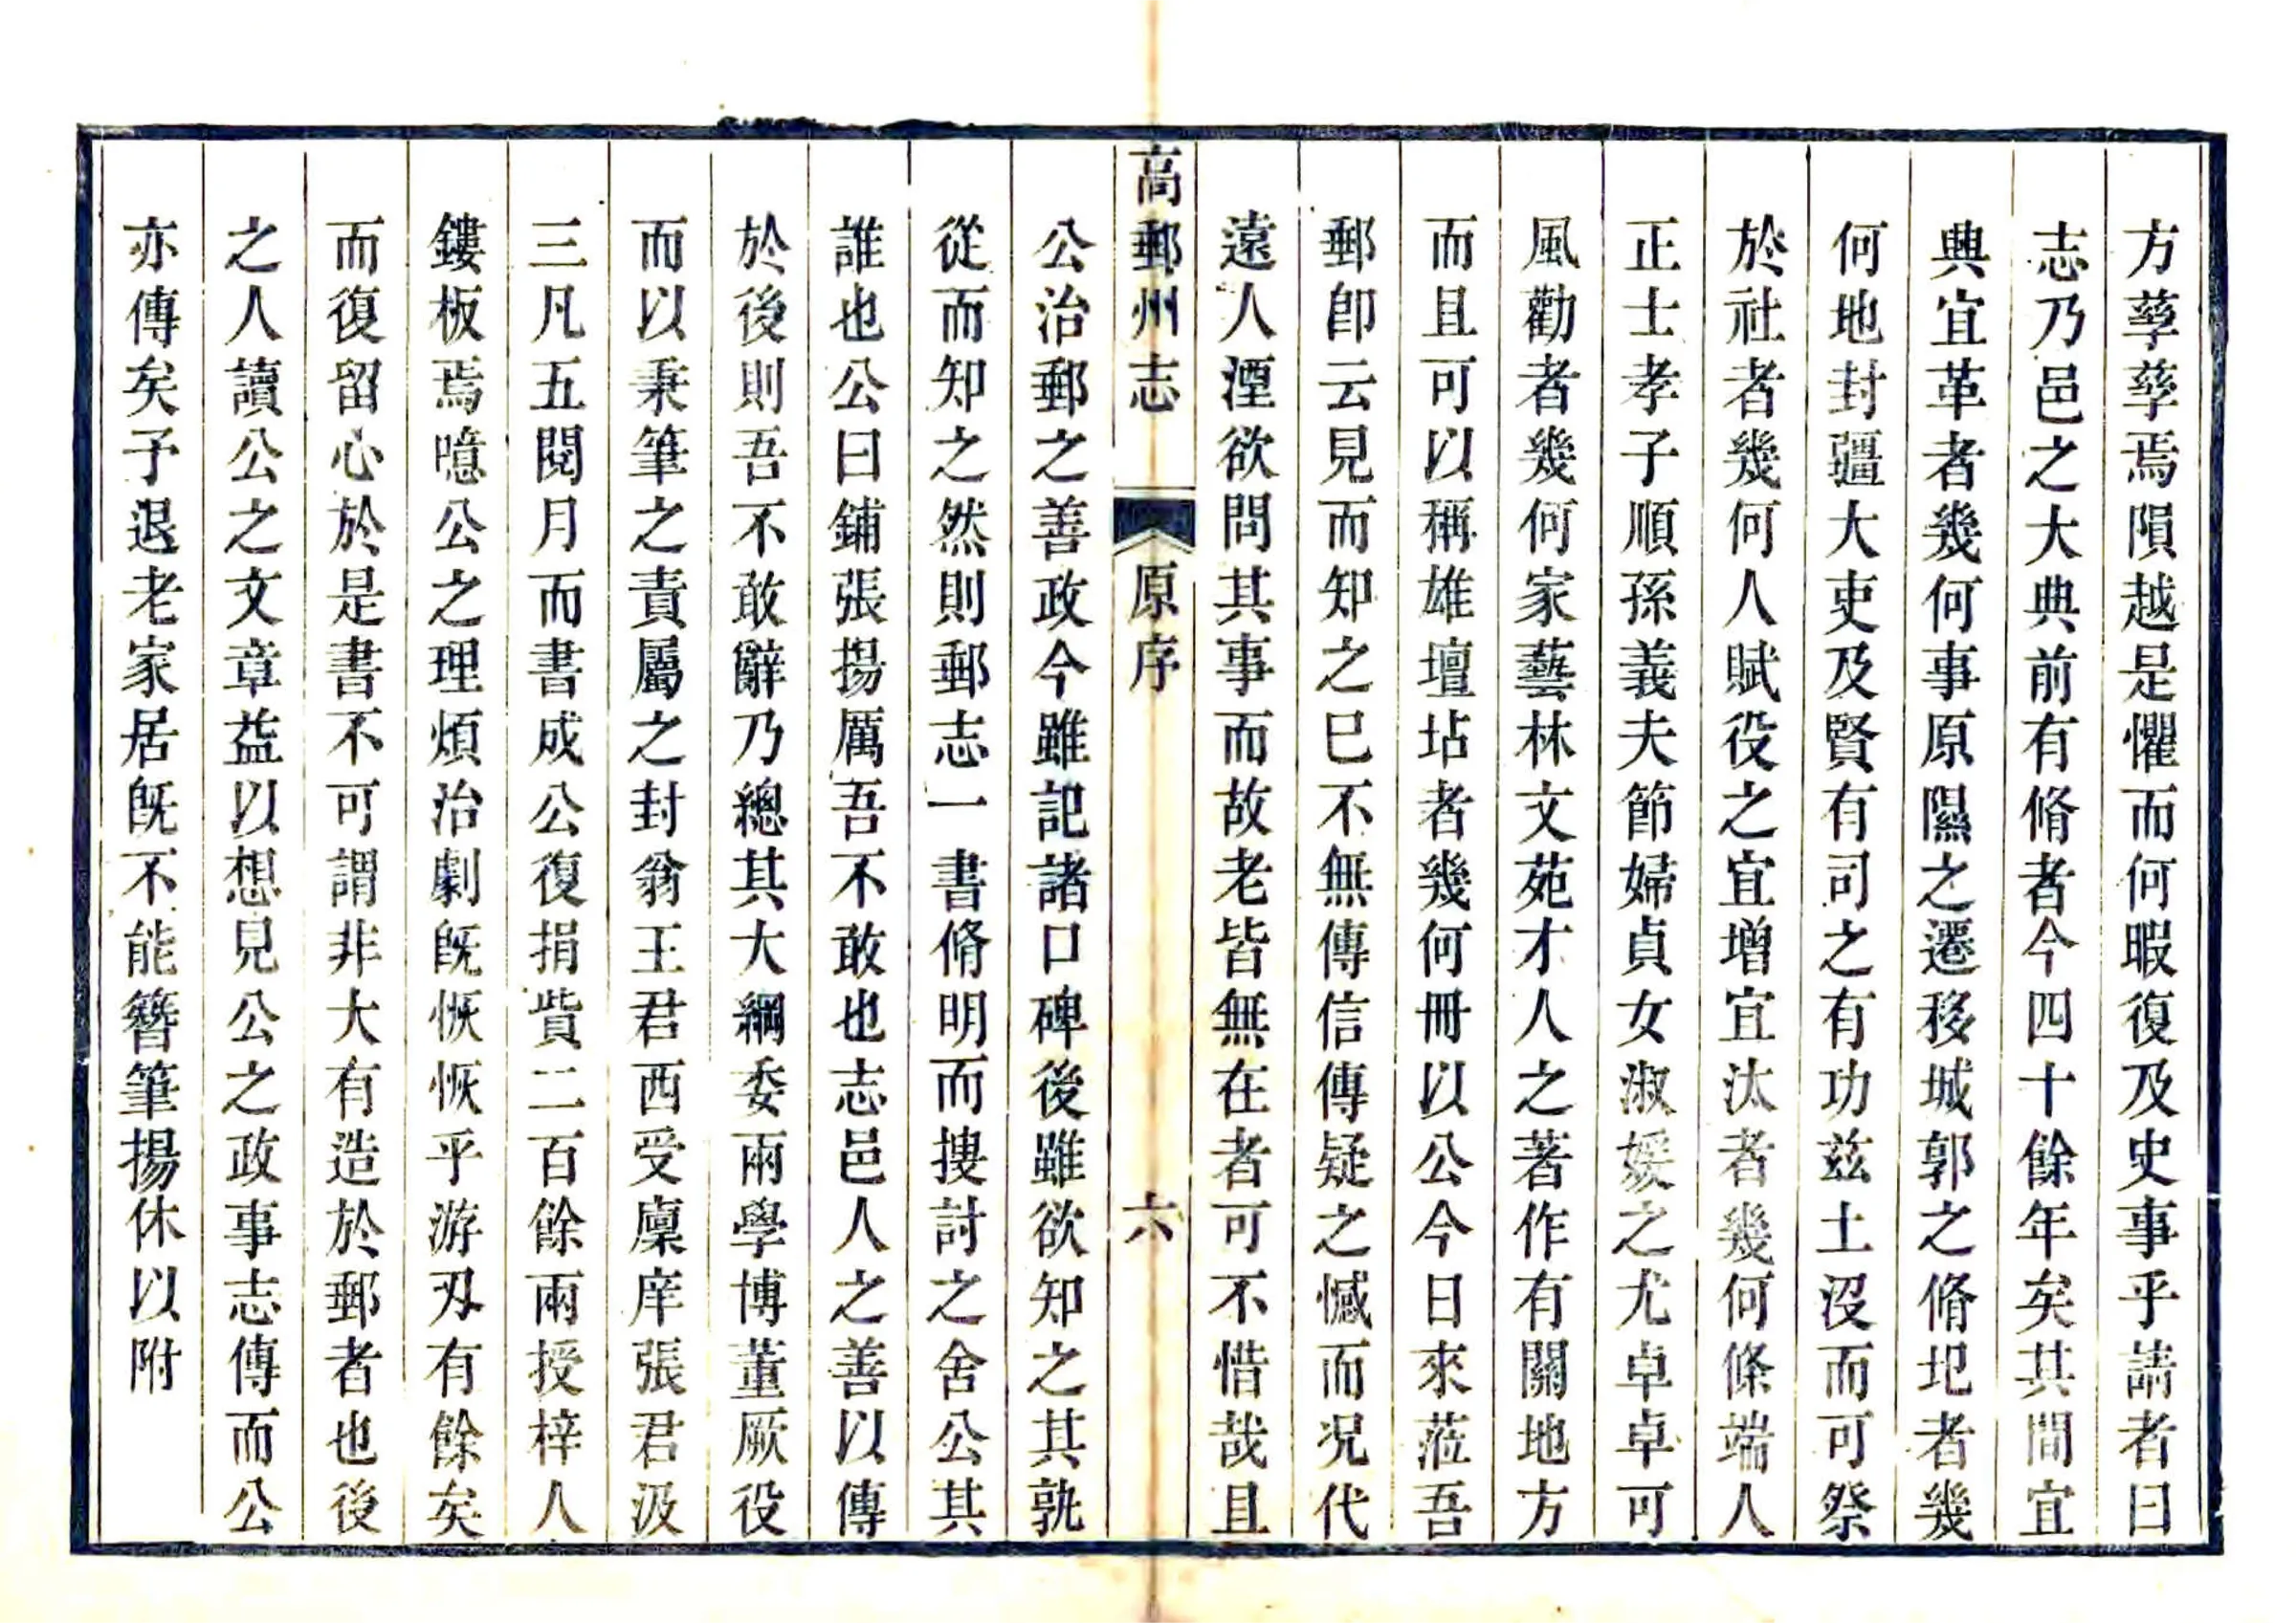 方孳孳焉隕越是懼而何暇復及史事乎請者曰
志乃邑之大典前有脩者今四十餘年矣其間宜
興宜革者幾何事原隰之遷移城郭之脩圯者幾
何地封疆大吏及賢有司之有功茲土沒而可祭
於社者幾何人賦役之宜增宜汰者幾何條端人
正士孝子順孫義夫節婦貞女淑媛之尤卓卓可
風勸者幾何家藝林文苑才人之著作有關地方
而且可以稱雄壇坫者幾何冊以公今日來蒞吾
郵卽云見而知之巳不無傳信傳疑之憾而况代
遠人湮欲問其事而故老皆無在者可不惜哉且
高郵州志 原序 六
公治郵之善政今雖記諸口碑後雖欲知之其孰
從而知之然則郵志一書脩明而捜討之舍公其
誰也公曰鋪張揚厲吾不敢也志邑人之善以傳
於後則吾不敢辭乃總其大綱委兩學博董厥役
而以秉筆之責屬之封翁王君西受廩庠張君汲
三凡五閱月而書成公復捐貲二百餘兩授梓人
鏤板焉噫公之理煩治劇旣恢恢乎游刃有餘矣
而復留心於是書不可謂非大有造於郵者也後
之人讀公之文章益以想見公之政事志傳而公
亦傳矣予退老家居旣不能簪筆揚休以附